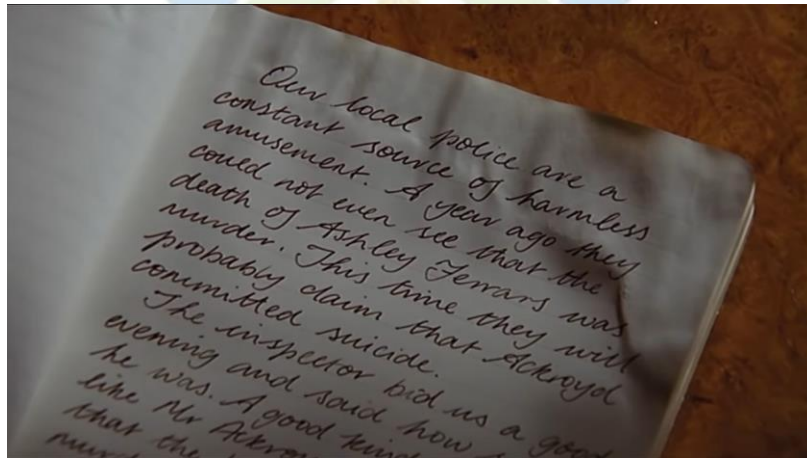 Our local police are a
constant source of harmless
amusement. A year ago they
could not even see that the
death of Ashley Ferrars was
murder. This time they will
probably claim that Ackroyd
committed suicide.
The inspector bid us a good
evening and said how
he was. A good kind
like Mr
that the